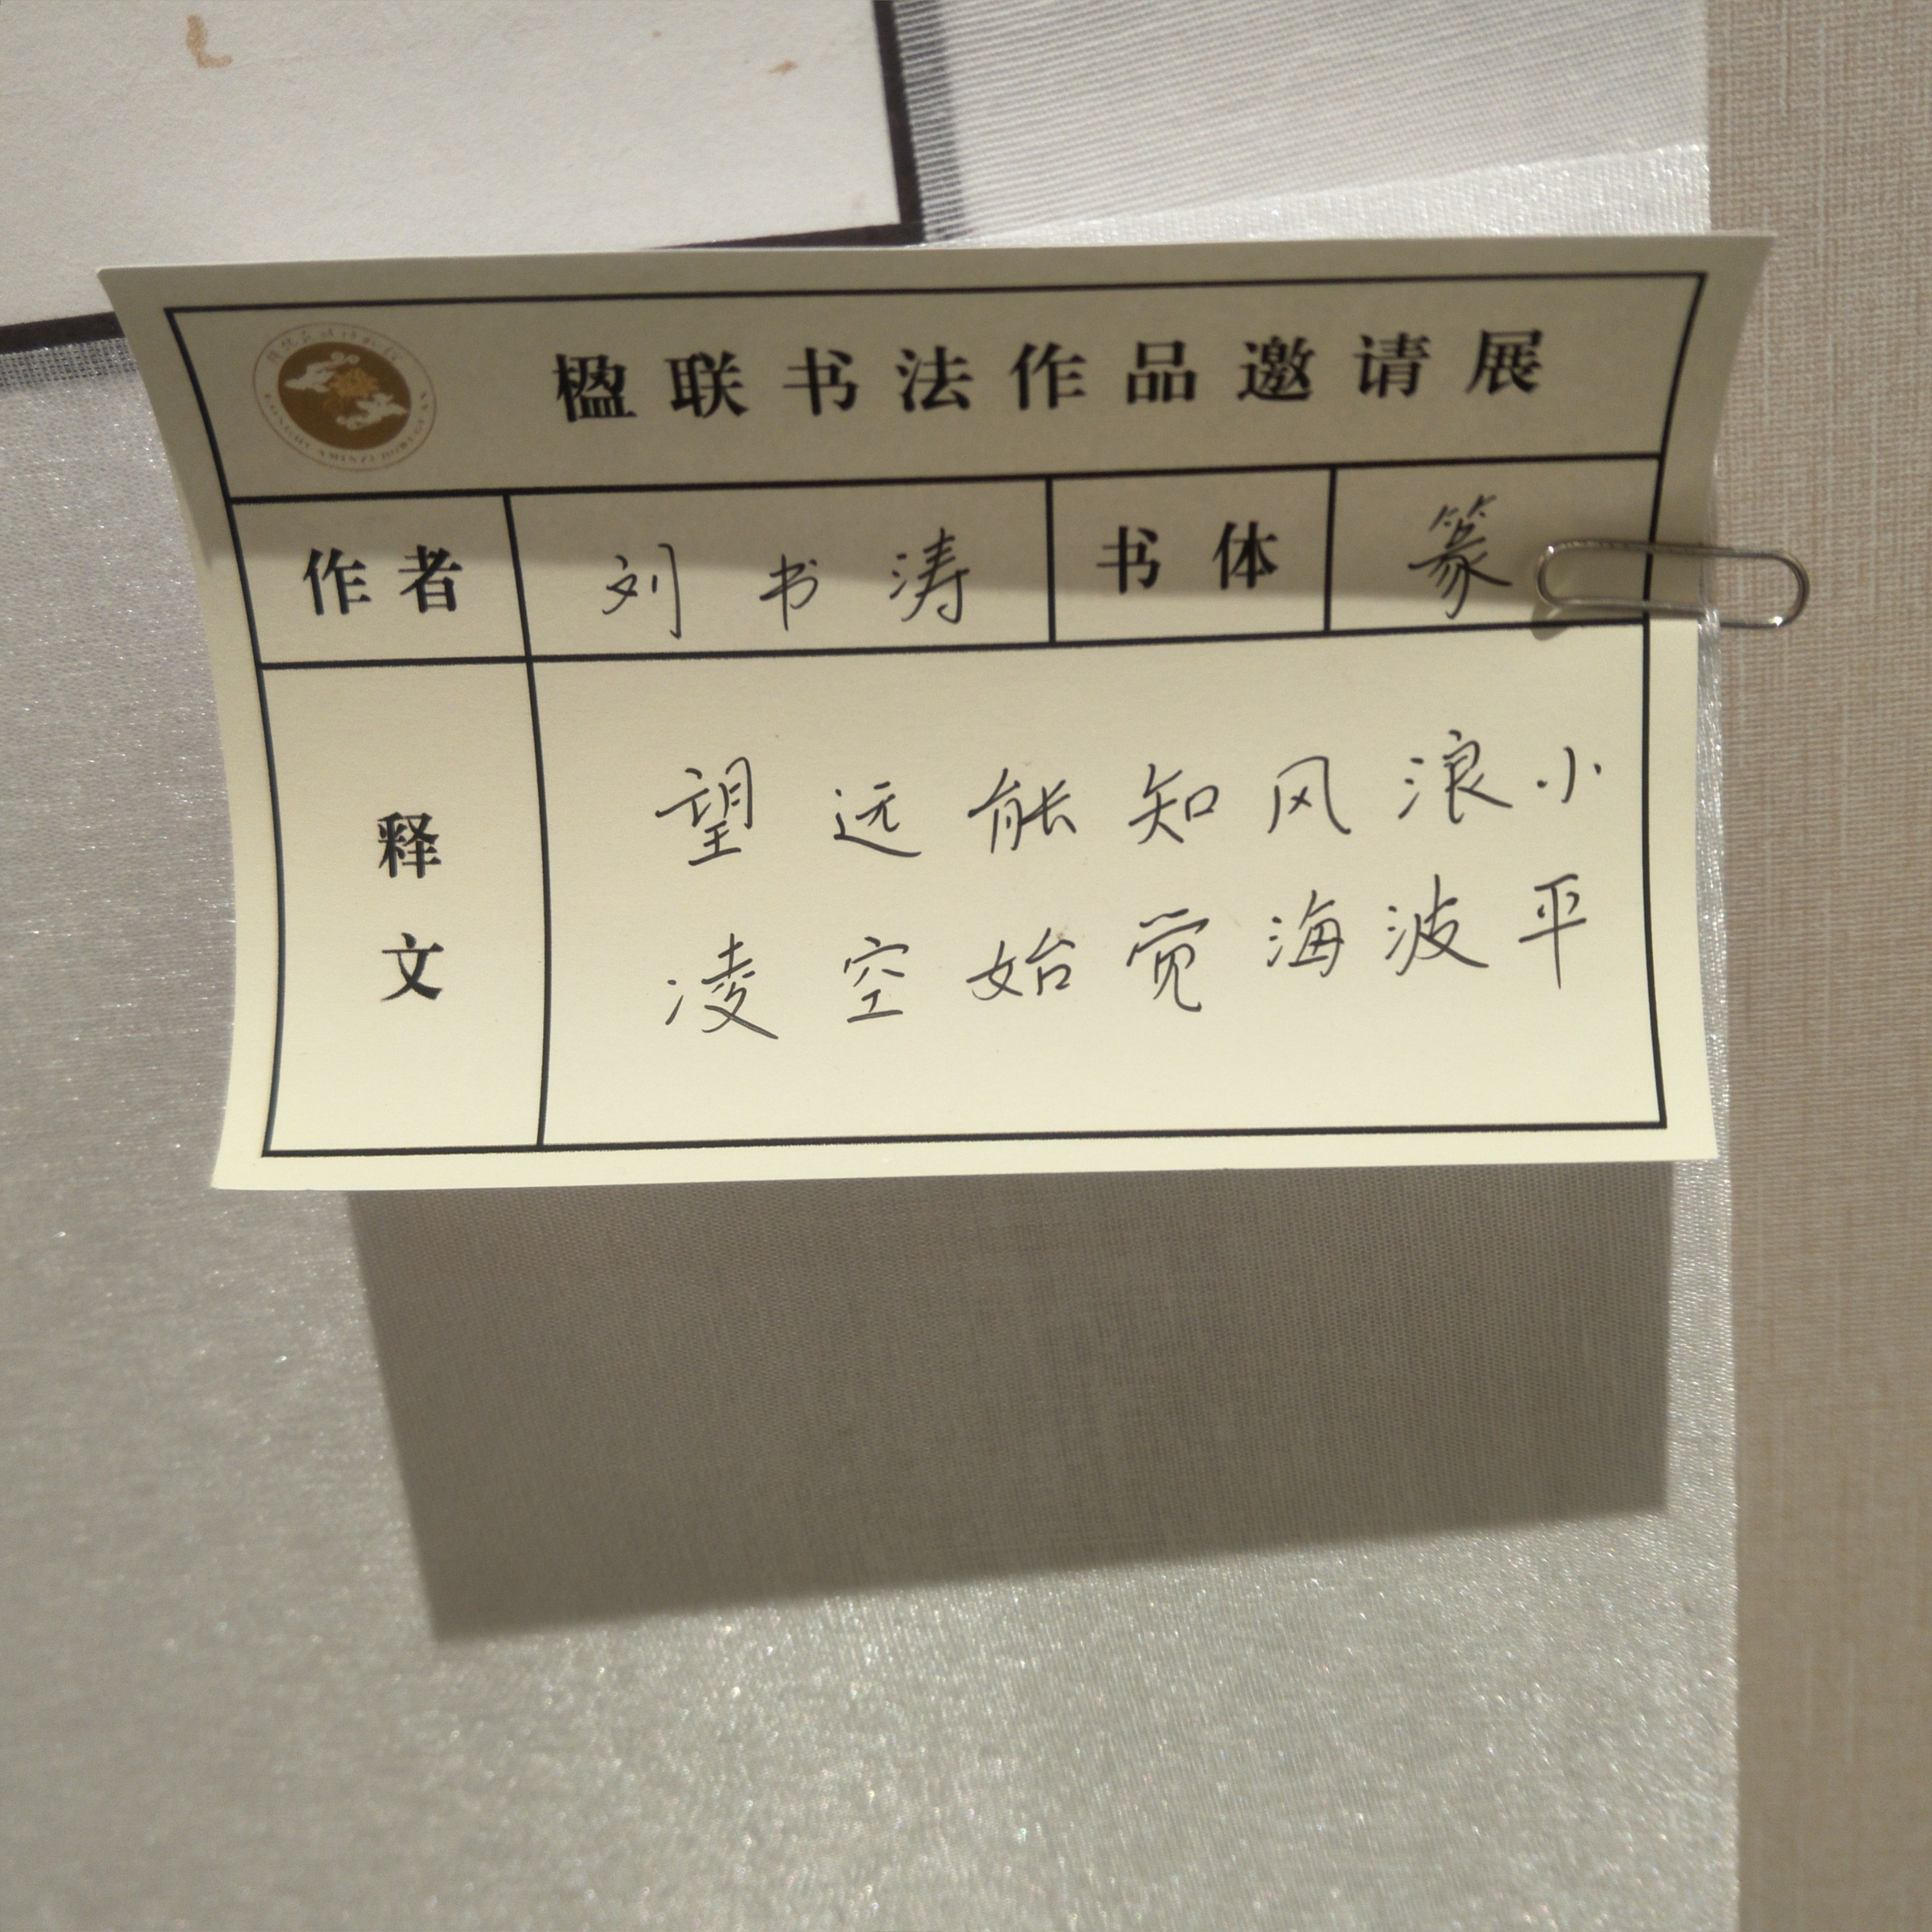 楹联书法作品邀请展
作者 刘书涛 书体 篆
释文
望远能知风浪小
凌空始觉海波平